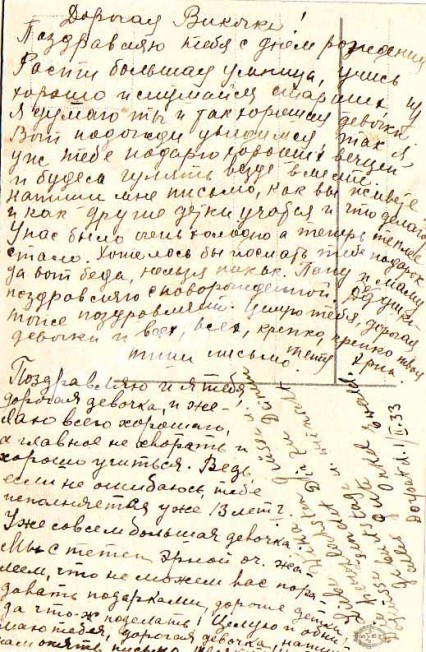 Дорогая Викочка!
Поздравляю тебя с днём рождения
Расти большая умница, учись
хорошо и слушайся старших ну
я думаю ты и так хорошая девочка.
Вот подожди увидимся так я
уж тебе подарю хороших вещей
и будем гулять везде вместе.
напиши мне письмо, как вы живете
и как другие детки учатся и что делают
У нас было очень холодно а теперь теплее
стало. Хотелось бы послать тебе подарок
да вот беда, нельзя никак. Папу и маму
поздравляю с новорожденной.
тоже поздравляют. Целую тебя, дорогая
девочка и всех, всех, крепко, крепко твоя
тётя Эрна.
пиши письмо.
Поздравляю и я тебя
дорогая девочка, и же-
лаю всего хорошего,
а главное не хворать и
хорошо учиться. Ведь,
если не ошибаюсь, тебе
исполняется уже 13 лет?
Уже совсем большая девочка.
Мы с тетей Эрной оч. жа-
леем, что не можем вас пора-
довать подарками, дорогие детки,
да что-ж поделать! Целую и обни-
маю тебя, дорогая девочка, напиши
нам опять письмо
Liebe
und
Onkel
Dorpat. 1/II.33